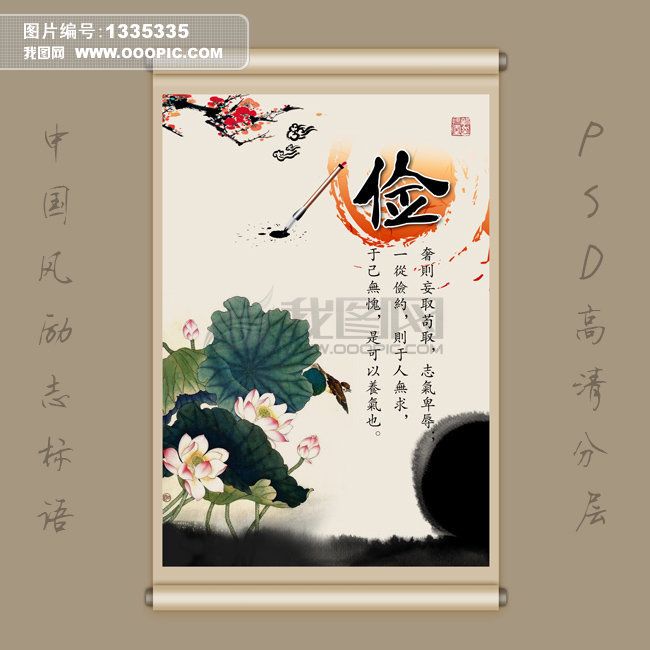 图片编号:1335335
我图网 www.OOOPIC.COM
中国风励志标语
PSD高清分层
俭
奢則妄取苟取，志氣卑辱；
一從儉約，則于人無求，
于己無愧，是可以養氣也。
我图网
WWW.OOOPIC.COM